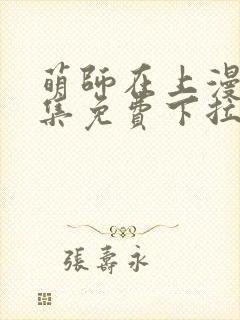 萌師在上漫
集免費下拉
張壽永